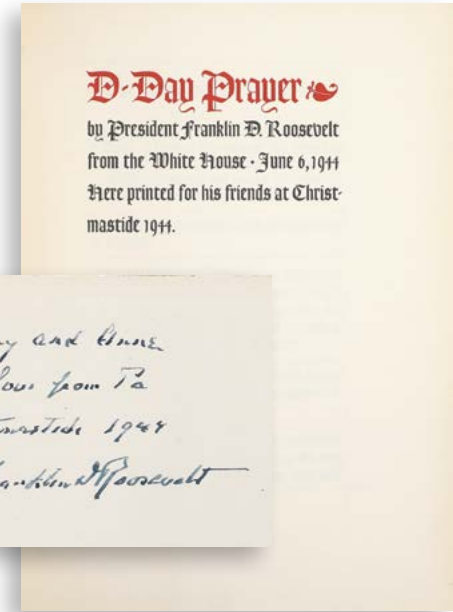 D-Day Prayer
by President Franklin D. Roosevelt
from the White House · June 6, 1944
Here printed for his friends at Christ-
mastide 1944.
and Anne
from Pa
1944
Franklin D Roosevelt